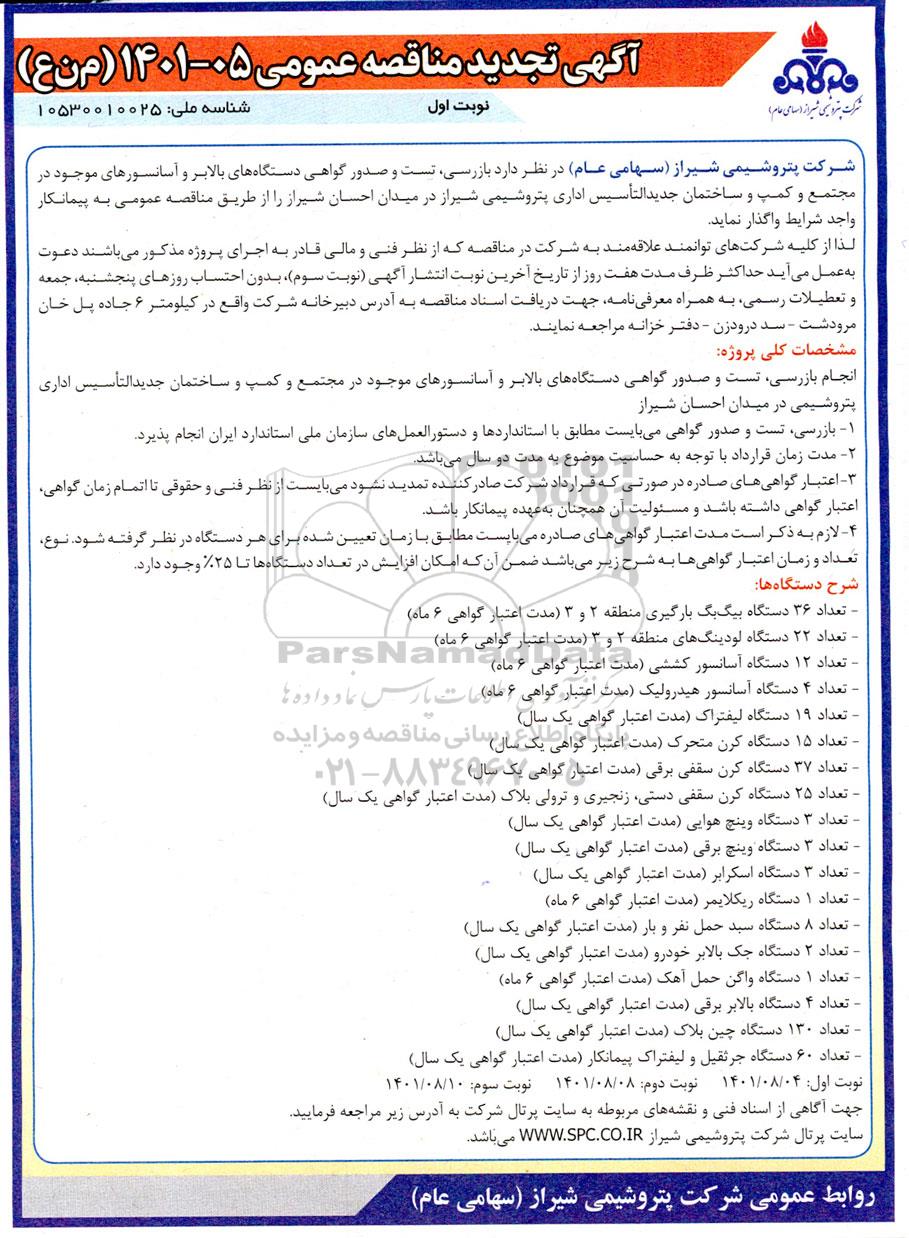 آگهی تجدید مناقصه عمومی ۰۵-۱۴۰۱ (م‌ن‌ع)
شرکت پتروشیمی شیراز (سهامی عام)
نوبت اول
شناسه ملی: ۱۰۵۳۰۰۱۰۰۲۵
شرکت پتروشیمی شیراز (سهامی عام) در نظر دارد بازرسی، تست و صدور گواهی دستگاه‌های بالابر و آسانسورهای موجود در
مجتمع و کمپ و ساختمان جدیدالتأسیس اداری پتروشیمی شیراز در میدان احسان شیراز را از طریق مناقصه عمومی به پیمانکار
واجد شرایط واگذار نماید.
لذا از کلیه شرکت‌های توانمند علاقه‌مند به شرکت در مناقصه که از نظر فنی و مالی قادر به اجرای پروژه مذکور می‌باشند دعوت
به‌عمل می‌آید حداکثر ظرف مدت هفت روز از تاریخ آخرین نوبت انتشار آگهی (نوبت سوم)، بدون احتساب روزهای پنجشنبه، جمعه
و تعطیلات رسمی، به همراه معرفی‌نامه، جهت دریافت اسناد مناقصه به آدرس دبیرخانه شرکت واقع در کیلومتر ۶ جاده پل خان
مرودشت - سد درودزن - دفتر خزانه مراجعه نمایند.
مشخصات کلی پروژه:
انجام بازرسی، تست و صدور گواهی دستگاه‌های بالابر و آسانسورهای موجود در مجتمع و کمپ و ساختمان جدیدالتأسیس اداری
پتروشیمی در میدان احسان شیراز
۱- بازرسی، تست و صدور گواهی می‌بایست مطابق با استانداردها و دستورالعمل‌های سازمان ملی استاندارد ایران انجام پذیرد.
۲- مدت زمان قرارداد با توجه به حساسیت موضوع به مدت دو سال می‌باشد.
۳- اعتبار گواهی‌های صادره در صورتی که قرارداد شرکت صادرکننده تمدید نشود می‌بایست از نظر فنی و حقوقی تا اتمام زمان گواهی،
اعتبار گواهی داشته باشد و مسئولیت آن همچنان به‌عهده پیمانکار باشد.
۴- لازم به ذکر است مدت اعتبار گواهی‌های صادره می‌بایست مطابق با زمان تعیین شده برای هر دستگاه در نظر گرفته شود. نوع،
تعداد و زمان اعتبار گواهی‌ها به شرح زیر می‌باشد ضمن آن‌که امکان افزایش در تعداد دستگاه‌ها تا ۲۵٪ وجود دارد.
شرح دستگاه‌ها:
- تعداد ۳۶ دستگاه بیگ‌بگ بارگیری منطقه ۲ و ۳ (مدت اعتبار گواهی ۶ ماه)
- تعداد ۲۲ دستگاه لودینگ‌های منطقه ۲ و ۳ (مدت اعتبار گواهی ۶ ماه)
- تعداد ۱۲ دستگاه آسانسور کششی (مدت اعتبار گواهی ۶ ماه)
- تعداد ۴ دستگاه آسانسور هیدرولیک (مدت اعتبار گواهی ۶ ماه)
- تعداد ۱۹ دستگاه لیفتراک (مدت اعتبار گواهی یک سال)
- تعداد ۱۵ دستگاه کرن متحرک (مدت اعتبار گواهی یک سال)
- تعداد ۳۷ دستگاه کرن سقفی برقی (مدت اعتبار گواهی یک سال)
- تعداد ۲۵ دستگاه کرن سقفی دستی، زنجیری و ترولی بلاک (مدت اعتبار گواهی یک سال)
- تعداد ۳ دستگاه وینچ هوایی (مدت اعتبار گواهی یک سال)
- تعداد ۳ دستگاه وینچ برقی (مدت اعتبار گواهی یک سال)
- تعداد ۳ دستگاه اسکرابر (مدت اعتبار گواهی یک سال)
- تعداد ۱ دستگاه ریکلایمر (مدت اعتبار گواهی ۶ ماه)
- تعداد ۸ دستگاه سبد حمل نفر و بار (مدت اعتبار گواهی یک سال)
- تعداد ۲ دستگاه جک بالابر خودرو (مدت اعتبار گواهی یک سال)
- تعداد ۱ دستگاه واگن حمل آهک (مدت اعتبار گواهی ۶ ماه)
- تعداد ۴ دستگاه بالابر برقی (مدت اعتبار گواهی یک سال)
- تعداد ۱۳۰ دستگاه چین بلاک (مدت اعتبار گواهی یک سال)
- تعداد ۶۰ دستگاه جرثقیل و لیفتراک پیمانکار (مدت اعتبار گواهی یک سال)
نوبت اول: ۱۴۰۱/۰۸/۰۴ نوبت دوم: ۱۴۰۱/۰۸/۰۸ نوبت سوم: ۱۴۰۱/۰۸/۱۰
جهت آگاهی از اسناد فنی و نقشه‌های مربوطه به سایت پرتال شرکت به آدرس زیر مراجعه فرمایید.
سایت پرتال شرکت پتروشیمی شیراز WWW.SPC.CO.IR می‌باشد.
روابط عمومی شرکت پتروشیمی شیراز (سهامی عام)
ParsNamadData
پایگاه اطلاع رسانی مناقصه و مزایده
۰۲۱-۸۸۳۴۹۶۷۰-۵